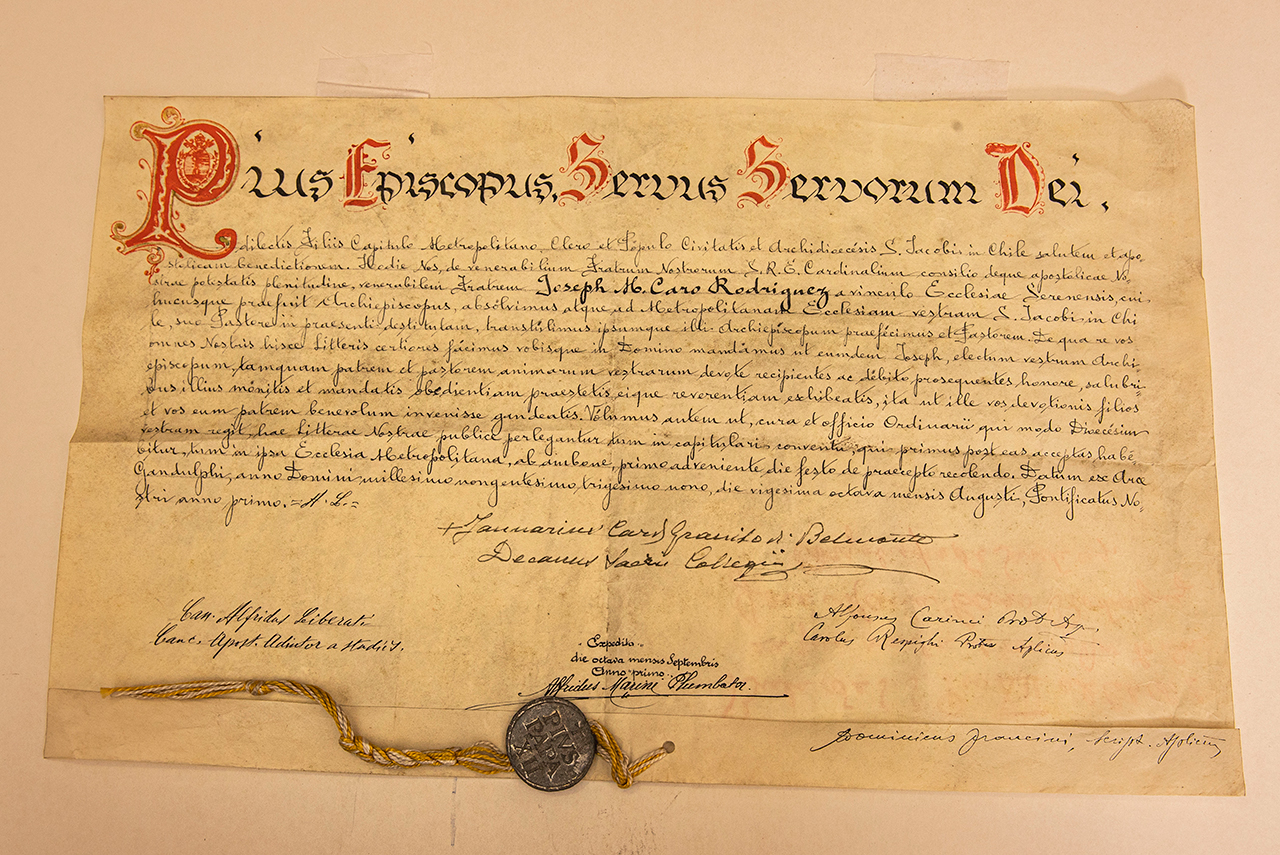 Pius Episcopus, Servus Servorum Dei.
dilectis Filiis Capitulo Metropolitano, Clero et Populo Civitatis et Archidioecesis S. Jacobi in Chile salutem et apo,
stolicam benedictionem. Hodie Nos, de venerabilium Fratrum Nostrorum S. R. E. Cardinalium consilio deque apostolicae No,
strae potestatis plenitudine, venerabilem Fratrem Joseph M. Caro Rodriguez a vinculo Ecclesiae Serenensis, cui
hucusque praefuit Archiepiscopus, absolvimus atque ad Metropolitanam Ecclesiam vestram S. Jacobi in Chi
le, suo Pastore in praesenti destitutam, transtulimus ipsumque illi Archiepiscopum praeficimus et Pastorem. De qua re vos
omnes Nostris hisce Litteris certiores facimus vobisque in Domino mandamus ut eumdem Joseph, electum vestrum Archi
episcopum, tamquam patrem et pastorem animarum vestrarum devote recipientes ac debito prosequentes honore, salubri-
bus illius monitis et mandatis obedientiam praestetis, eique reverentiam exhibeatis, ita ut ille vos devotionis filios
et vos eum patrem benevolum invenisse gaudeatis. Volumus autem ut, cura et officio Ordinarii qui modo Dioecesim
vestram regit, hae Litterae Nostrae publice perlegantur tum in capitulari conventu, qui primus post eas acceptas habe-
bitur, tum in ipsa Ecclesia Metropolitana, ab ambone, primo adveniente die festo de praecepto recolendo. Datum ex Arce
Gandulphi, anno Domini millesimo nongentesimo trigesimo nono, die vigesima octava mensis Augusti, Pontificatus No-
stri anno primo. =A. L.=
+ Januarius Card Granito di Belmonte
Decanus Sacri Collegii
Can. Alfridus Liberati
Canc. Apost. Adiutor a studiis.
Alfonsus Carinci Prot. Ap.
Carolus Respighi Proton Aplicus
Expedita
die octava mensis Septembris
Anno primo
Alfridus Marini Plumbator.
PIVS
PAPA
XII
Dominicus Francini, Script. Aplicus